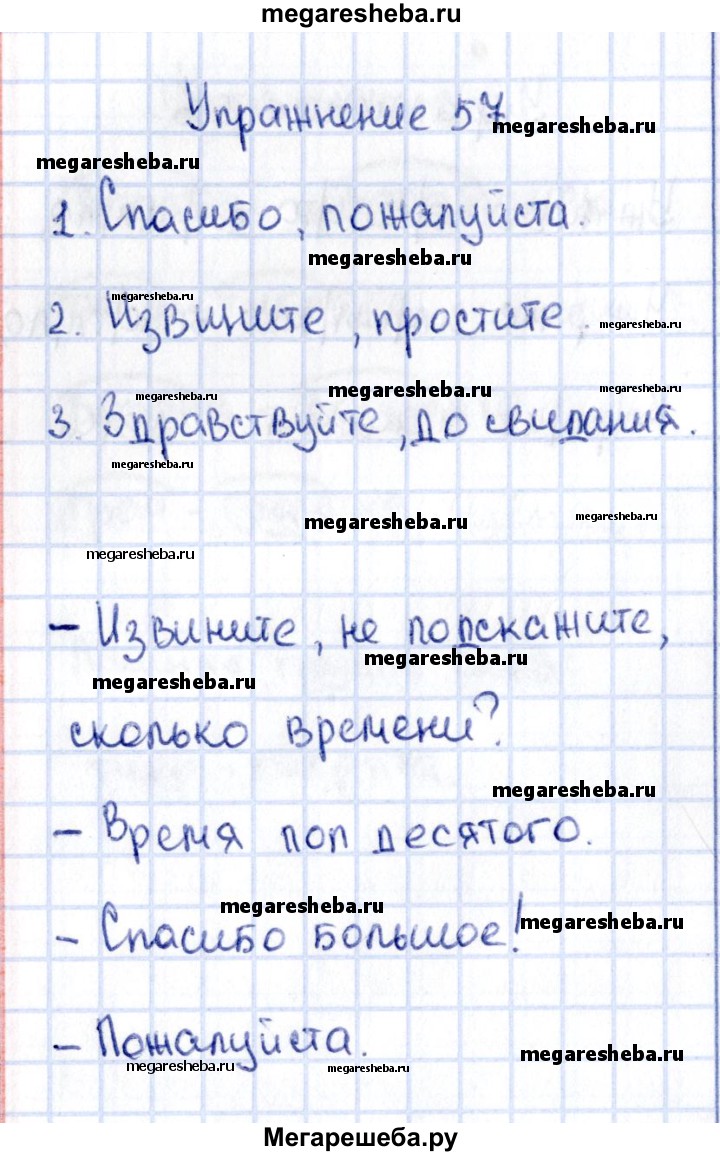 megaresheba.ru
Упражнение 57
megaresheba.ru
megaresheba.ru
1. Спасибо, пожалуйста.
megaresheba.ru
megaresheba.ru
2. Извините, простите.
megaresheba.ru
megaresheba.ru
megaresheba.ru
megaresheba.ru
3. Здравствуйте, до свидания.
megaresheba.ru
megaresheba.ru
megaresheba.ru
megaresheba.ru
– Извините, не подскажите,
megaresheba.ru
megaresheba.ru
сколько времени?
megaresheba.ru
– Время пол десятого.
megaresheba.ru
– Спасибо большое!
megaresheba.ru
– Пожалуйста.
megaresheba.ru
megaresheba.ru
megaresheba.ru
Мегарешеба.ру